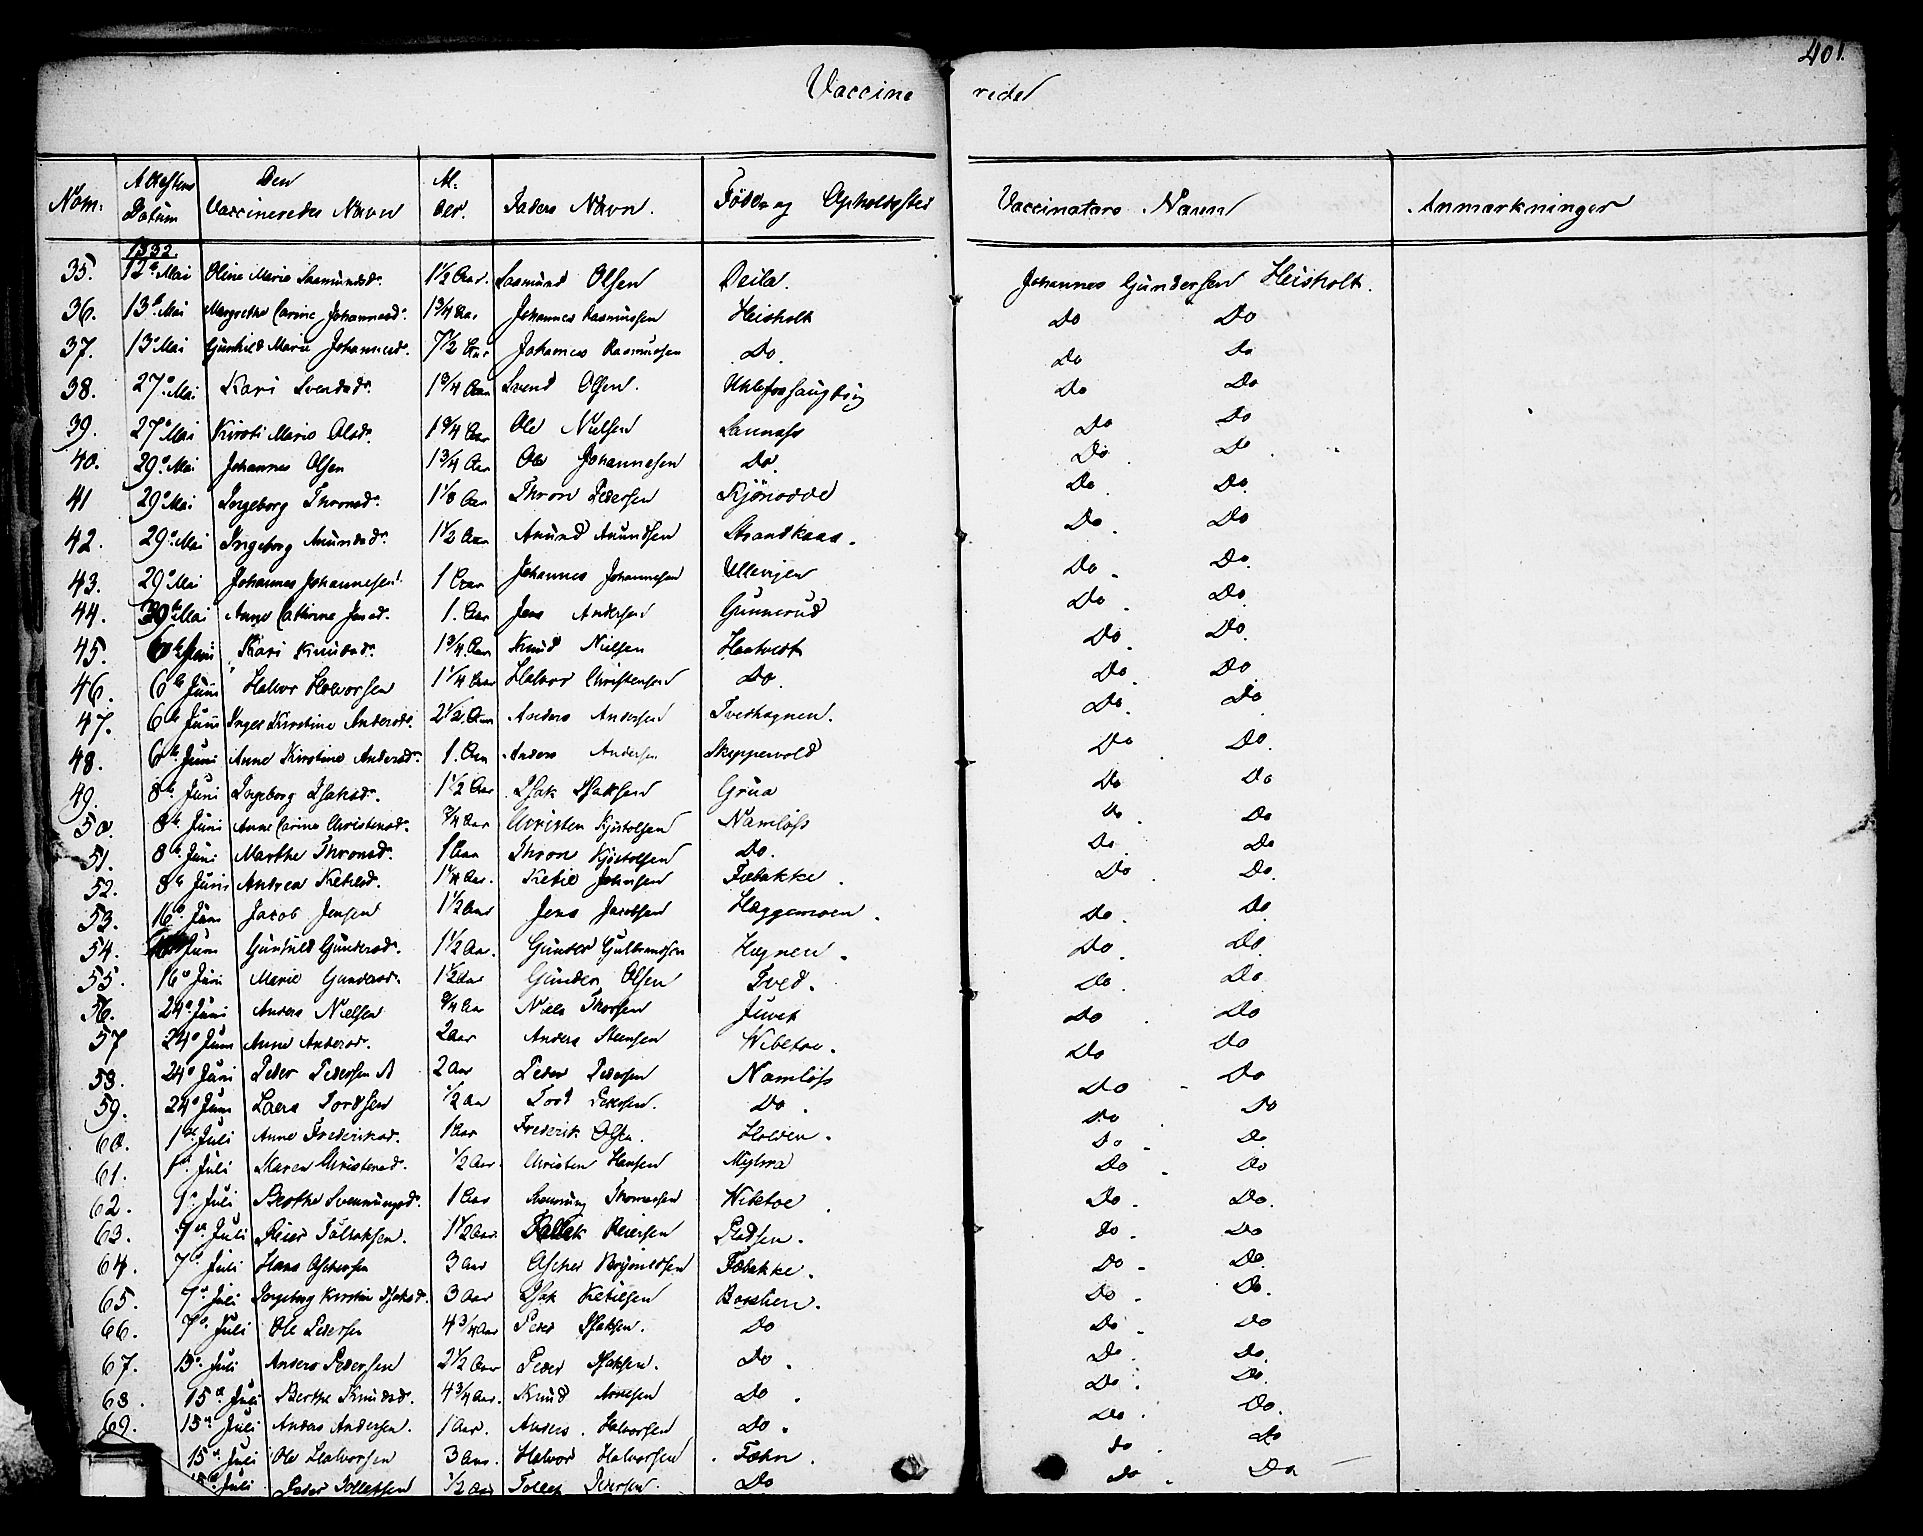 401.
Vaccine rede
Nom: Attestens Datum Den Vaccineredes Navn Al: der. Faders Navn. Føde og Opholdssted Vaccinatørs Navn Anmærkninger
1832.
35. 12te Mai Oline Marie Rasmundsd. 1 1/2 Aar. Rasmund Olsen Deila. Johannes Gundersen Heisholt.
36. 13de Mai Margrethe Carine Johannesd. 1 3/4 Aar Johannes Rasmussen Heisholt Do Do
37. 13de Mai Gunhild Marie Johannesd. 7 1/2 Aar Johannes Rasmussen Do. Do Do
38. 27de Mai Kari Svendsd. 1 3/4 Aar Svend Olsen. Do Do
39. 27de Mai Kirsti Marie Olsd. 1 3/4 Aar Ole Nielsen Do Do
40. 29de Mai Johannes Olsen 1 3/4 Aar Ole Johannesen Do. Do. Do.
41 29de Mai Ingeborg Thronsd. 1 1/8 Aar Thron Pedersen Do. Do.
42. 29de Mai Ingeborg Amundsd. 1 1/2 Aar Amund Amundsen Strandkaas. Do. Do
43. 29de Mai Johannes Johannesen. 1 Aar Johannes Johannesen Do. Do.
44. Mai Anne Cathrine Jensd. 1. Aar Jens Andersen Gunnerud Do. Do.
45. 6te Juni Kari Knudsd. 1 3/4 Aar Knud Nielsen Haatvedt Do. Do.
46. 6te Juni Halvor Halvorsen 1 1/4 Aar Halvor Christensen Do. Do. Do.
47. 6te Juni Inger Kirstine Andersd. 2 1/2 Aar Anders Andersen Tvedhagnen. Do. Do.
48. 6te Juni Anne Kirstine Andersd. 1. Aar Anders Andersen Skippervold Do Do.
49. 8de Juni Ingeborg Isaksd. 1 1/2 Aar Isak Isaksen Grua Do Do
50. 8de Juni Anne Carine Christensd. 3/4 Aar Christen Kjøstolsen Namløss Do. Do
51. 8de Juni Marthe Thronsd. 1 Aar Thron Kjøstolsen Do. Do. Do
52. 8de Juni Andrea Ketilsd. 1 1/4 Aar. Ketil Johnsen Fæbakke. Do. Do.
53. 16de Juni Jacob Jensen 1 1/2 Aar Jens Jacobsen Haggemoen. Do. Do.
54. Juni Gunhild Gundersd. 1 1/2 Aar. Gunder Gulbrandsen Hagnen. Do. Do.
55. 16de Juni Marie Gundersd. 1 1/2 Aar Gunder Olsen Tved. Do. Do.
56. 24de Juni Anders Nielsen 3/4 Aar Niels Thorsen Juvet Do. Do
57 24de Juni Anne Andersd. 2 Aar Anders Steensen Wibetoe. Do Do
58. 24de Juni Peder Pedersen 2 Aar Peder Pedersen Namløss Do. Do
59. 24de Juni Lars Tordsen 1/2 Aar Tord Pedersen. Do. Do. Do
60. 1ste Juli Anne Frederiksd. 1 Aar Frederik Olsen Holden. Do. Do.
61. 1ste Juli Maren Christensd. 1/2 Aar Christen Hansen Myhra Do. Do
62. Juli Berthe Svennungsd. 1 Aar Svennung Thomassen Wibetoe. Do. Do.
63. 7de Juli Reier Tallaksen. 1 1/2 Aar. Tallak Reiersen Do. Do
64. 7de Juli Hans Aschersen 3 Aar Ascher Brynildsen Fæbakke. Do. Do.
65. 7de Juli Ingeborg Kirstine Isaksd. 3 Aar Isak Ketilsen Do. Do.
66. 7de Juli Ole Pedersen 4 3/4 Aar Peder Isaksen. Do Do. Do
67. 13de Juli Anders Pedersen 2 1/2 Aar Peder Isaksen. Do. Do. Do.
68. 15de Juli Berthe Knudsd. 4 3/4 Aar. Knud Arnesen Do. Do. Do.
69. 15de Juli Anders Andersen. 1 Aar. Anders Halvorsen Do. Do. Do.
15de Juli Ole Halvorsen 3 Aar. Halvor Halvorsen Fæhn. Do. Do
15de Juli Peder Tollefsen 1/2 Aar Tollef Pedersen. Do Do. Do